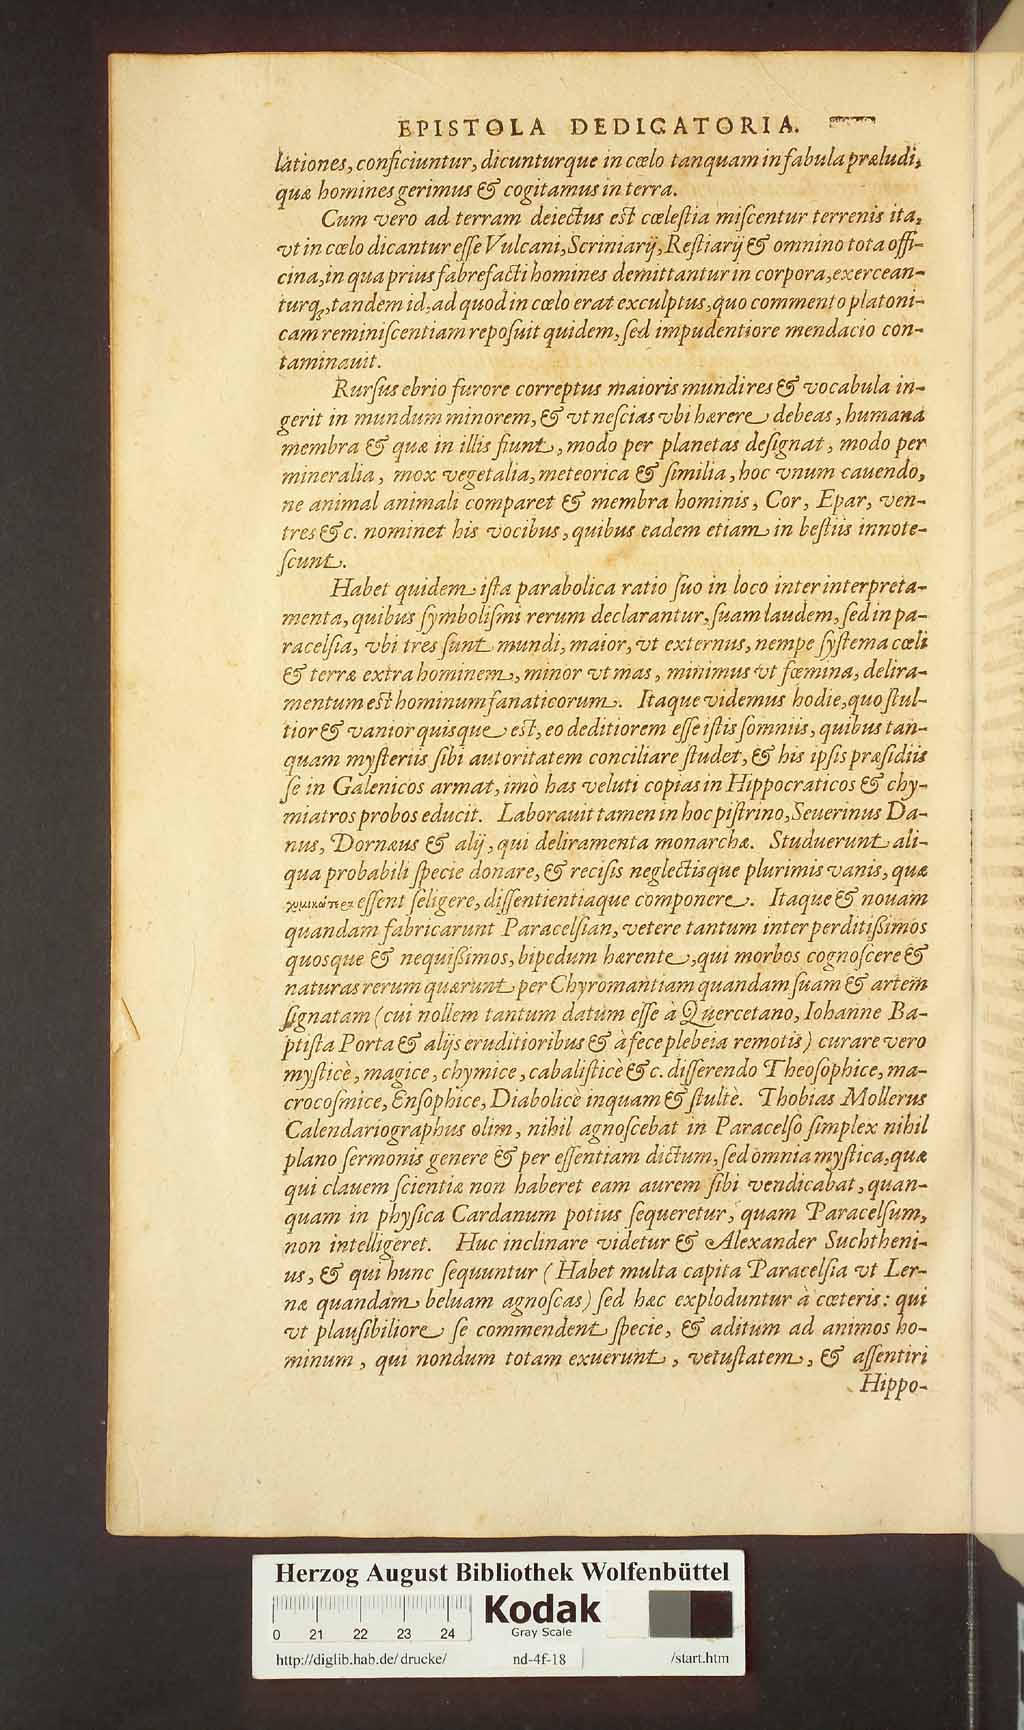 EPISTOLA DEDICATORIA.
lationes, conficiuntur, dicunturque in cœlo tanquam in fabula præludi,
quæ homines gerimus & cogitamus in terra.
Cum vero ad terram deiectus est cœleſtia miſcentur terrenis ita,
vt in cœlo dicantur eſſe Vulcani, Scriniarij, Reſtiarij & omnino tota offi-
cina, in qua prius fabrefacti homines demittantur in corpora, exercean-
turq́, tandem id, ad quod in cœlo erat exculptus, quo commento platoni-
cam reminiſcentiam repoſuit quidem, ſed impudentiore mendacio con-
taminauit.
Rurſus ebrio furore correptus maioris mundi res & vocabula in-
gerit in mundum minorem, & vt neſcias vbi hærere debeas, humana
membra & quæ in illis fiunt, modo per planetas deſignat, modo per
mineralia, mox vegetalia, meteorica & ſimilia, hoc vnum cauendo,
ne animal animali comparet & membra hominis, Cor, Epar, ven-
tres &c. nominet his vocibus, quibus eadem etiam in beſtiis innote-
ſcunt.
Habet quidem iſta parabolica ratio ſuo in loco inter interpreta-
menta, quibus ſymboliſmi rerum declarantur, ſuam laudem, ſed in pa-
racelſia, vbi tres ſunt mundi, maior, vt externus, nempe ſyſtema cœli
& terræ extra hominem, minor vt mas, minimus vt fœmina, delira-
mentum est hominum fanaticorum. Itaque videmus hodie, quo ſtul-
tior & vanior quisque est, eo deditiorem eſſe iſtis ſomniis, quibus tan-
quam myſteriis ſibi autoritatem conciliare ſtudet, & his ipſis præſidiis
ſe in Galenicos armat, imò has veluti copias in Hippocraticos & chy-
miatros probos educit. Laborauit tamen in hoc piſtrino, Seuerinus Da-
nus, Dornæus & alij, qui deliramenta monarchæ. Studuerunt ali-
qua probabili ſpecie donare, & reciſis neglectisque plurimis vanis, quæ
eſſent ſeligere, diſſentientiaque componere. Itaque & nouam
quandam fabricarunt Paracelſian, vetere tantum inter perditiſſimos
quosque & nequiſſimos, bipedum hærente, qui morbos cognoſcere &
naturas rerum quærunt per Chyromantiam quandam ſuam & artem
ſignatam (cui nollem tantum datum eſſe à Quercetano, Iohanne Ba-
ptiſta Porta & alijs eruditioribus & à fece plebeia remotis) curare vero
myſticè, magice, chymice, cabaliſticè &c. diſſerendo Theoſophice, ma-
crocoſmice, Enſophice, Diabolicè inquam & ſtultè. Thobias Mollerus
Calendariographus olim, nihil agnoſcebat in Paracelſo ſimplex nihil
plano ſermonis genere & per eſſentiam dictum, ſed omnia myſtica, quæ
qui clauem ſcientiæ non haberet eam aurem ſibi vendicabat, quan-
quam in phyſica Cardanum potius ſequeretur, quam Paracelſum,
non intelligeret. Huc inclinare videtur & Alexander Suchtheni-
us, & qui hunc ſequuntur (Habet multa capita Paracelſia vt Ler-
næ quandam beluam agnoſcas) ſed hæc exploduntur à cœteris: qui
vt plauſibiliore ſe commendent ſpecie, & aditum ad animos ho-
minum, qui nondum totam exuerunt, vetuſtatem, & aſſentiri
Hippo-
Herzog August Bibliothek Wolfenbüttel
Kodak
Gray Scale
0 21 22 23 24
http://diglib.hab.de/drucke/ nd-4f-18 /start.htm